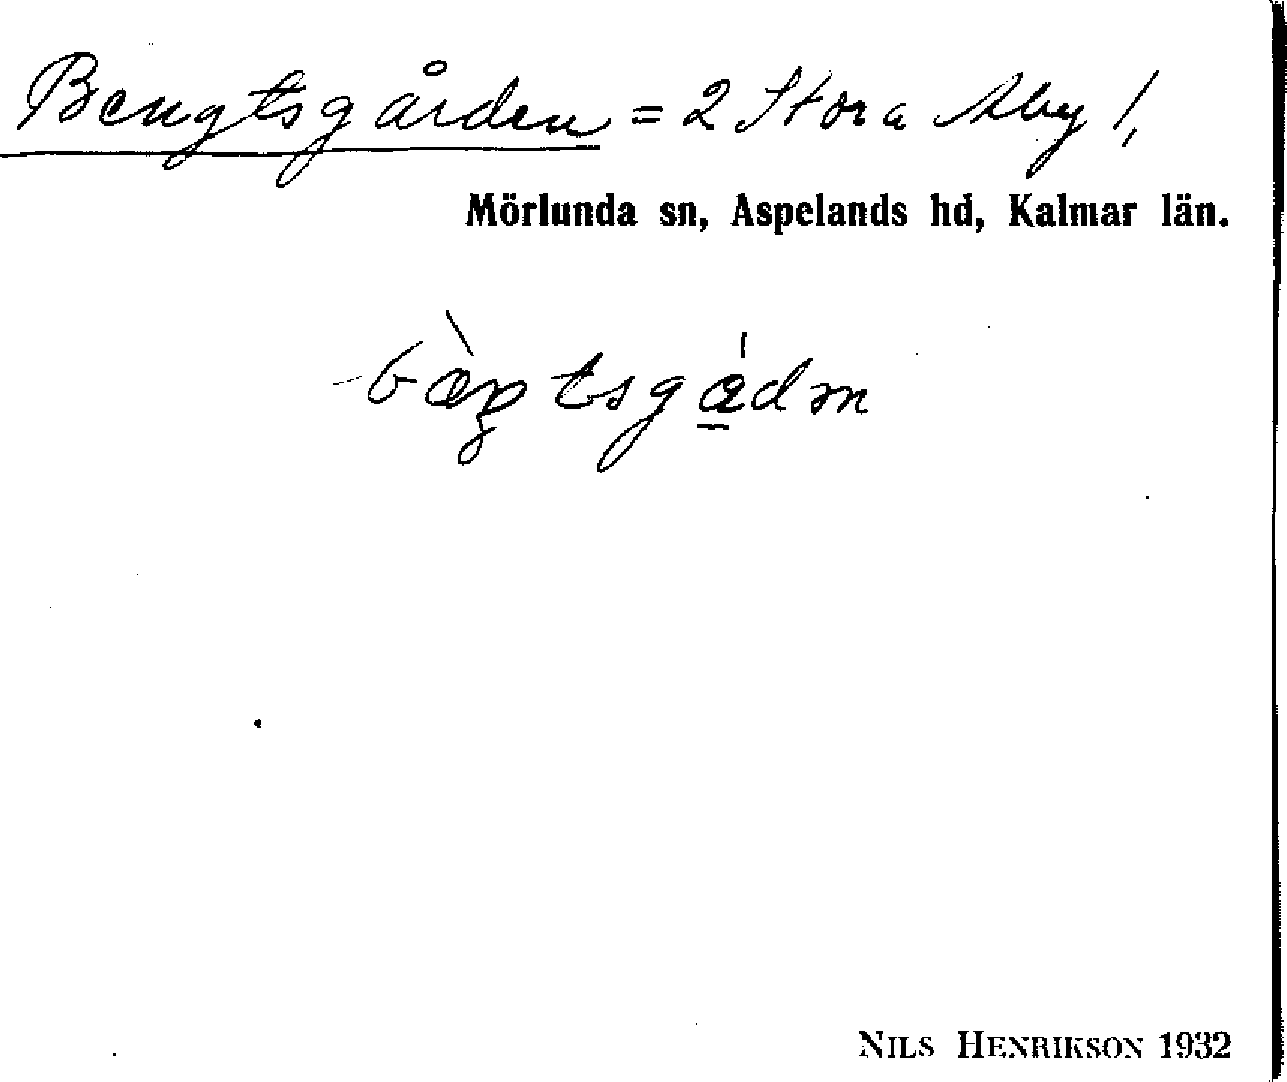 Bengtsgården = 2 Stora Åby /,
Mörlunda sn, Aspelands hd, Kalmar län.
NILS HENRIKSON 1932